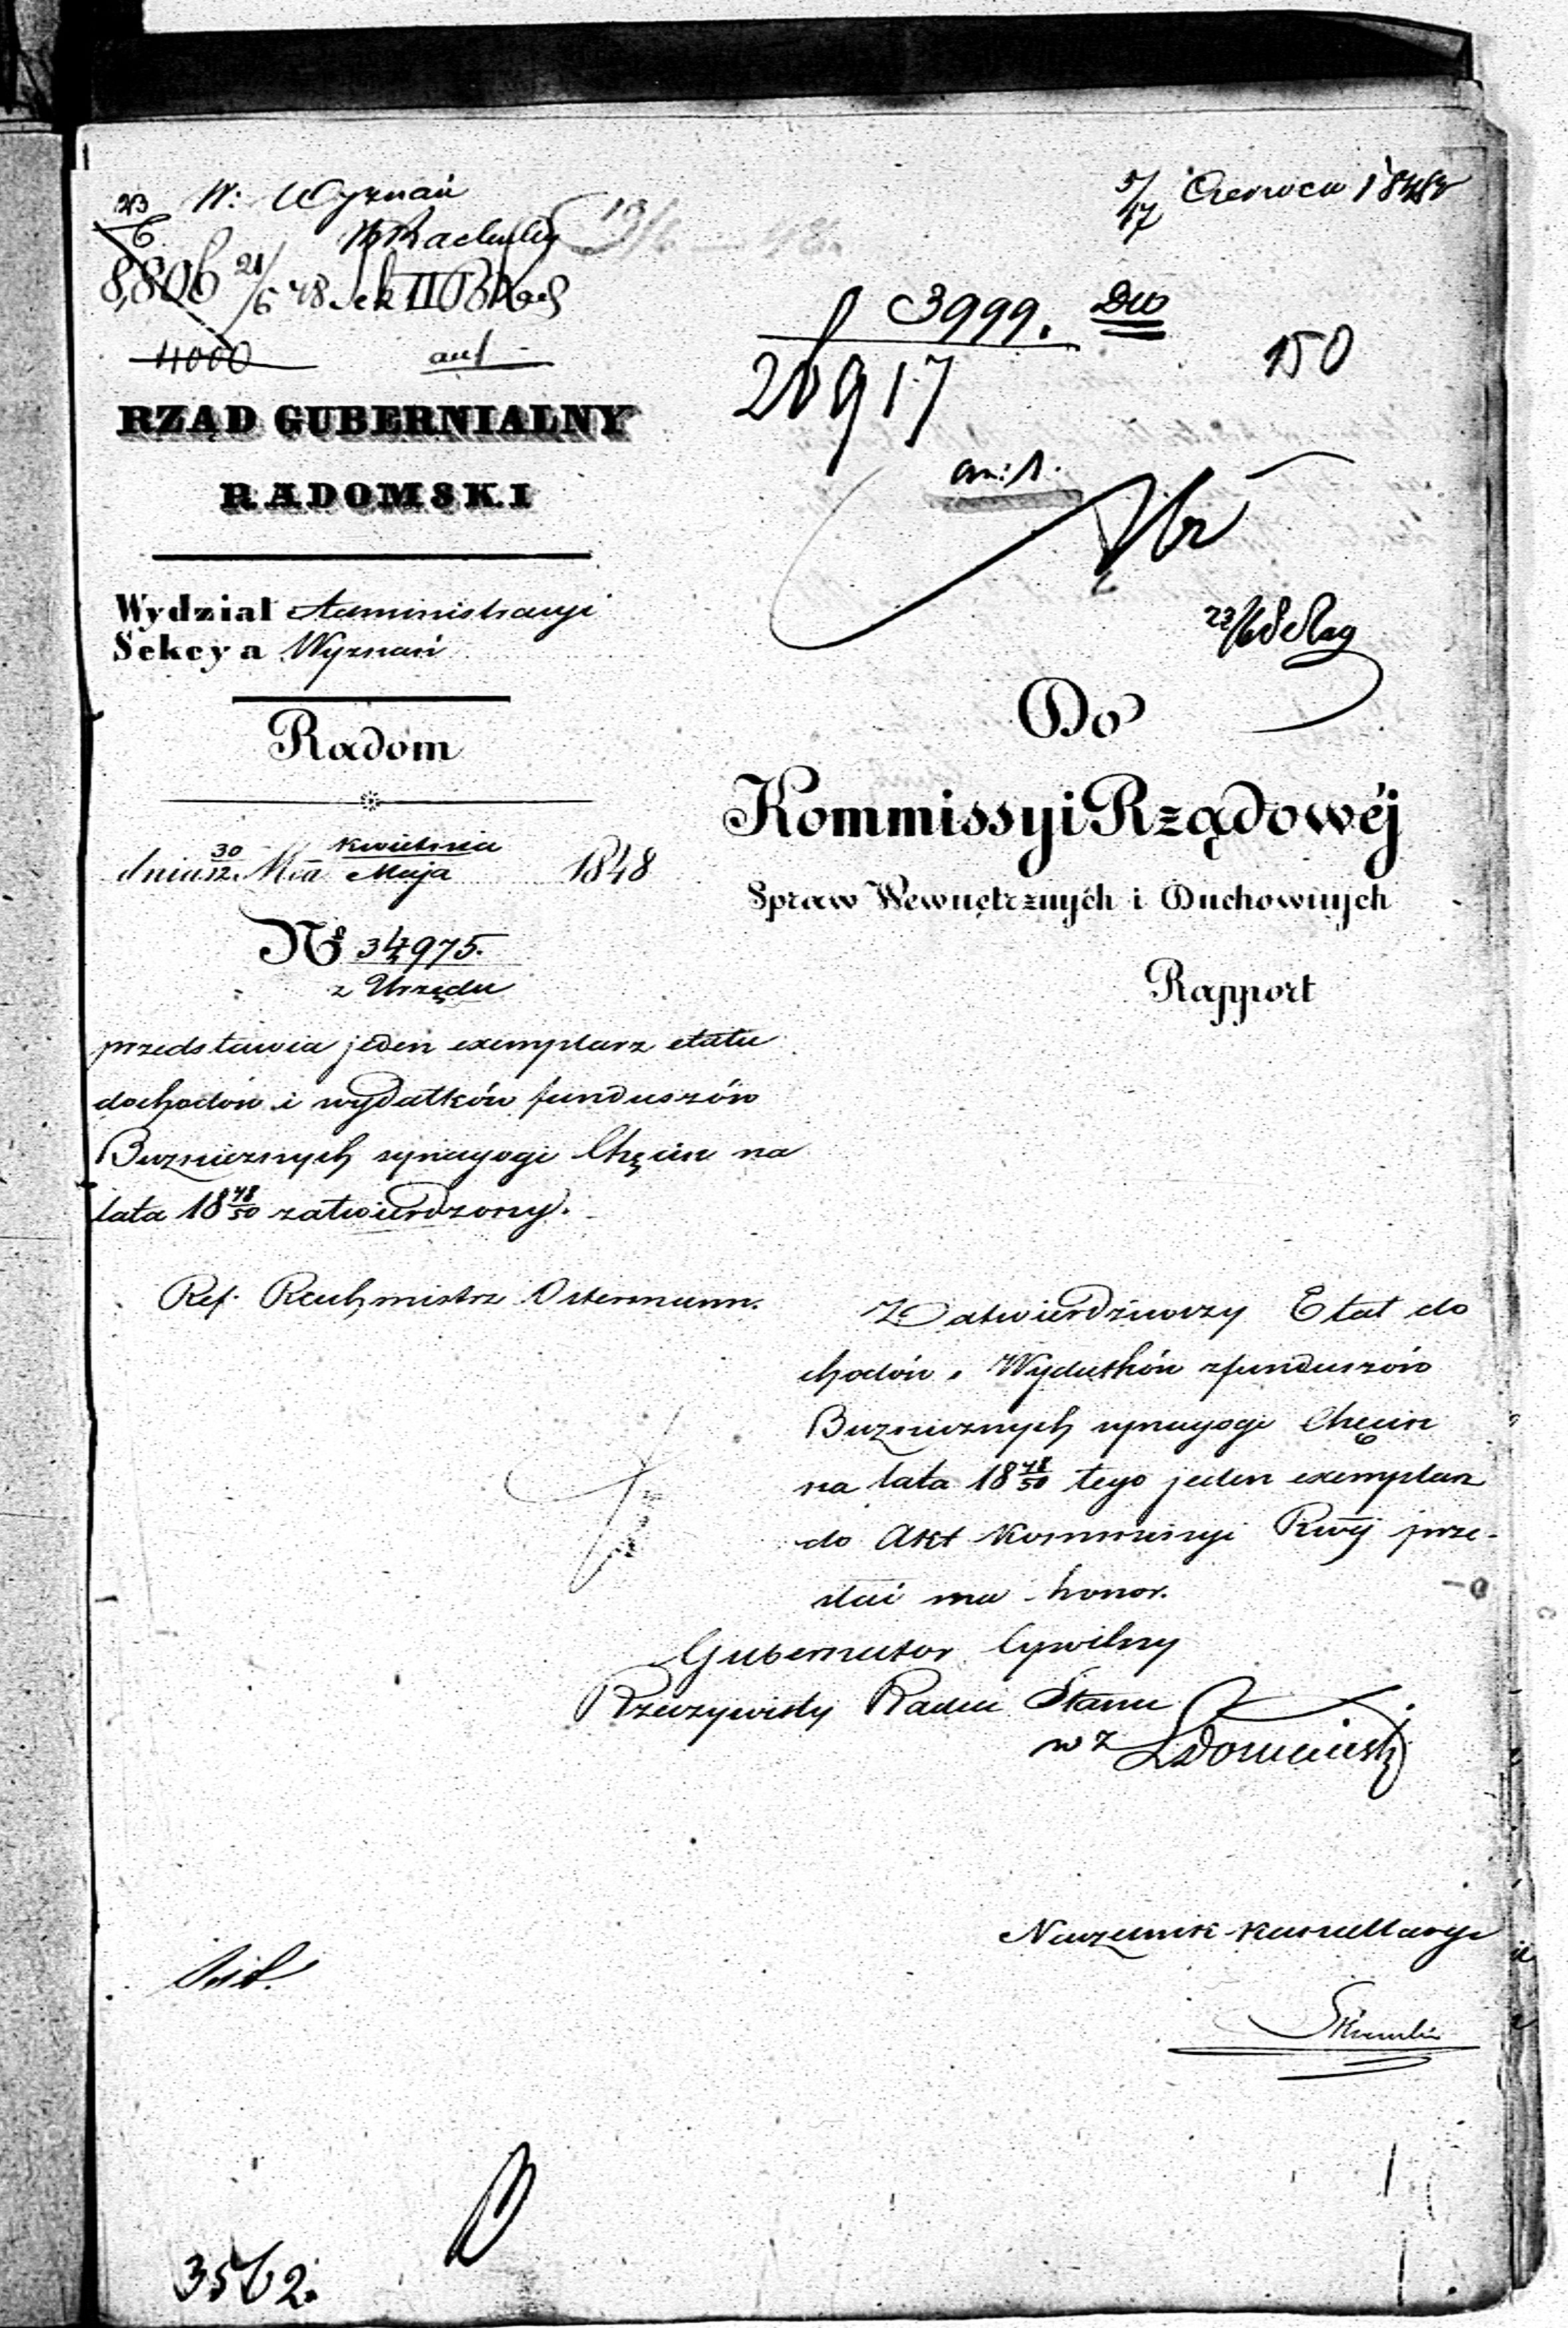 W: Wyznań
5/17 Czerwca 1848r
23
8,806 21/6 48 Sek II
4000
3999.
20917
150
an: 1.
23/6
RZĄD GUBERNIALNY
RADOMSKI
Wydział Administracyi
Sekcya Wyznań
Radom
dnia 30/12 Mca kwietnia/Maja 1848
№ 34975.
z Urzędu
przedstawia jeden exemplarz etatu
dochodów i wydatków funduszów
Bużnicznych synagogi Chęcin na
lata 18 48/50 zatwierdzony.
Ref. Rachmistrz Ostermann.
Do
Kommissyi Rządowéj
Spraw Wewnętrznych i Duchownych
Rapport
Zatwierdziwszy Etat do
chodów i Wydatków z funduszów
Bużnicznych synagogi Chęcin
na lata 18 48/50 tego jeden exemplarz
do Akt Kommissyi Rwéj prze-
słać ma honor.
Gubernator Cywilny
Rzeczywisty Radca Stanu
w z
Naczelnik Kancellaryi
3562.